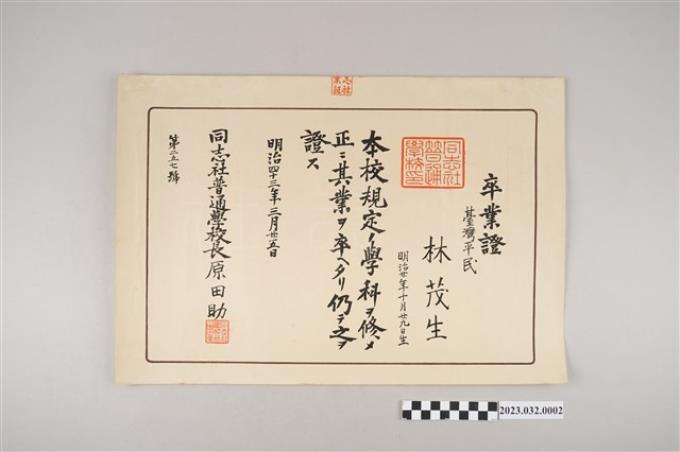 卒業證
臺灣平民
林茂生
明治廿年十月廿九日生
本校規定ノ學科ヲ修メ
正ニ其業ヲ卒ヘタリ仍テ之ヲ
證ス
明治四十三年三月廿五日
同志社普通學校長原田助
第二五七號
同志社
普通
學校印
2023.032.0002